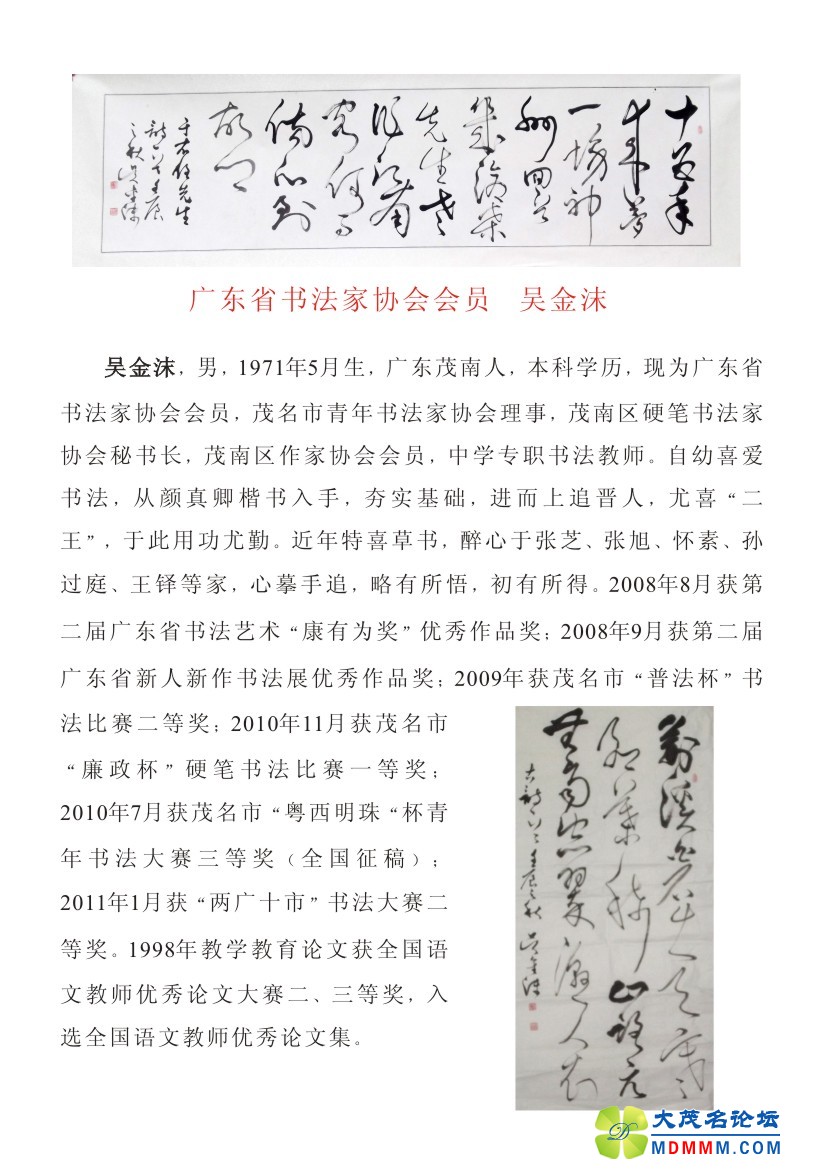 来梦
一场神
州回首
先生老
江南
客何事
于右任先生
诗一首壬辰
之秋吴金沫
广东省书法家协会会员 吴金沫
吴金沫，男，1971年5月生，广东茂南人，本科学历，现为广东省
书法家协会会员，茂名市青年书法家协会理事，茂南区硬笔书法家
协会秘书长，茂南区作家协会会员，中学专职书法教师。自幼喜爱
书法，从颜真卿楷书入手，夯实基础，进而上追晋人，尤喜“二
王”，于此用功尤勤。近年特喜草书，醉心于张芝、张旭、怀素、孙
过庭、王铎等家，心摹手追，略有所悟，初有所得。2008年8月获第
二届广东省书法艺术“康有为奖”优秀作品奖；2008年9月获第二届
广东省新人新作书法展优秀作品奖；2009年获茂名市“普法杯”书
法比赛二等奖；2010年11月获茂名市
“廉政杯”硬笔书法比赛一等奖；
2010年7月获茂名市“粤西明珠“杯青
年书法大赛三等奖（全国征稿）；
2011年1月获“两广十市”书法大赛二
等奖。1998年教学教育论文获全国语
文教师优秀论文大赛二、三等奖，入
选全国语文教师优秀论文集。
荆溪白石出天寒
红叶稀山路元
无雨空翠湿人衣
古诗一首壬辰之秋吴金沫
大茂名论坛
MDMMM.COM